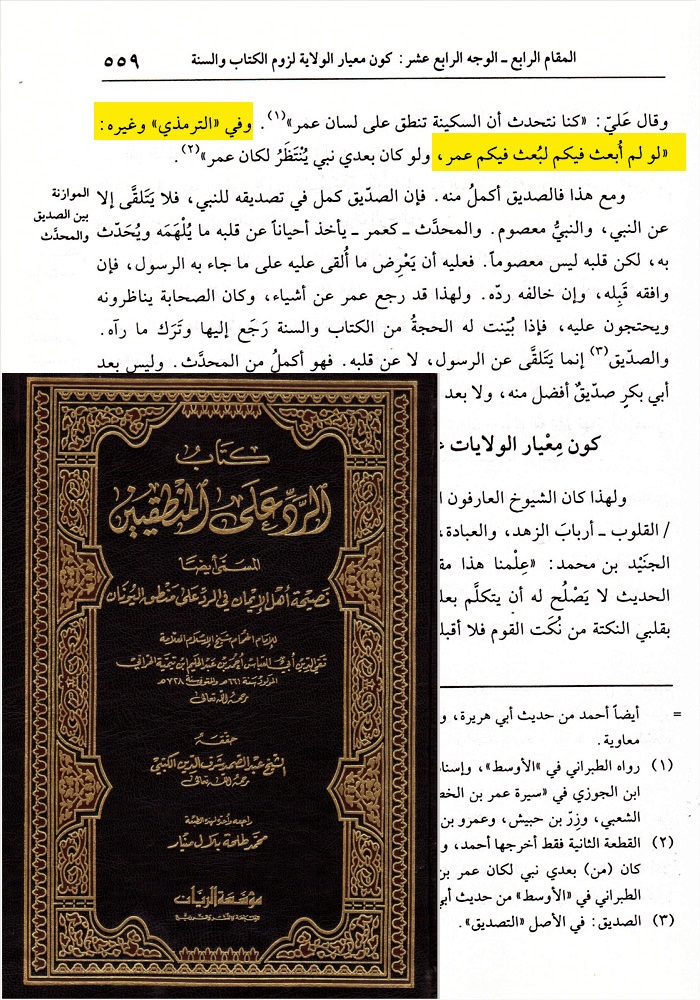 المقام الرابع ــ الوجه الرابع عشر: كون معيار الولاية لزوم الكتاب والسنة ٥٥٩
وقال عَليّ: «كنا نتحدث أن السكينة تنطق على لسان عمر»(١). وفي «الترمذي» وغيره:
«لو لم أُبعث فيكم لبُعث فيكم عمر، ولو كان بعدي نبي يُنْتَظَرُ لكان عمر»(٢).
ومع هذا فالصديق أكملُ منه. فإن الصدّيق كمل في تصديقه للنبي، فلا يَتَلقَّى إلا
عن النبي، والنبيُّ معصوم. والمحدَّث ــ كعمر ــ يأخذ أحياناً عن قلبه ما يُلْهَمَه ويُحَدّث
به، لكن قلبه ليس معصوماً. فعليه أن يَعْرِض ما أُلقى عليه على ما جاء به الرسول، فإن
وافقه قَبِله، وإن خالفه ردّه. ولهذا قد رجع عمر عن أشياء، وكان الصحابة يناظرونه
ويحتجون عليه، فإذا بُيّنت له الحجةُ من الكتاب والسنة رَجَع إليها وتَرَك ما رآه.
والصدّيق(٣) إنما يَتَلقَّى عن الرسول، لا عن قلبه. فهو أكملُ من المحدَّث. وليس بعد
أبي بكرٍ صدّيقٌ أفضل منه، ولا بعد
الموازنة
بين الصديق
والمحدَّث
كون مِعْيار الولايات
ولهذا كان الشيوخ العارفون
/ القلوب ــ أربابَ الزهد، والعبادة،
الجنَيْد بن محمد: «عِلْمنا هذا
الحديث لا يَصْلُح له أن يتكلَّم
بقلبي النكتة من نُكَت القوم فلا
= أيضاً أحمد من حديث أبي هريرة،
معاوية.
(١) رواه الطبراني في «الأوسط»،
ابن الجوزي في «سيرة عمر بن
الشعبي، وزِرّ بن حبيش، وعمرو بن
(٢) القطعة الثانية فقط أخرجها أحمد،
كان (من) بعدي نبي لكان عمر
الطبراني في «الأوسط» من حديث
(٣) الصديق: في الأصل «التصديق».
كتاب
الرد على المنطقيين
المسمى أيضا
نصيحة أهل الإيمان في الرد على منطق اليونان
للإمام الهمام شيخ الإسلام العلامة
تقي الدين أبي العباس أحمد بن عبد الحليم ابن تيمية الحراني
المولود سنة ٦٦١هـ والمتوفى سنة ٧٢٨هـ
رحمه الله تعالى
حققه
الشيخ عبد الصمد شرف الدين الكتبي
رحمه الله تعالى
راجعه وأعده لهذه الطبعة
محمد طلحة بلال منيار
مؤسسة الريان
للطباعة والنشر والتوزيع